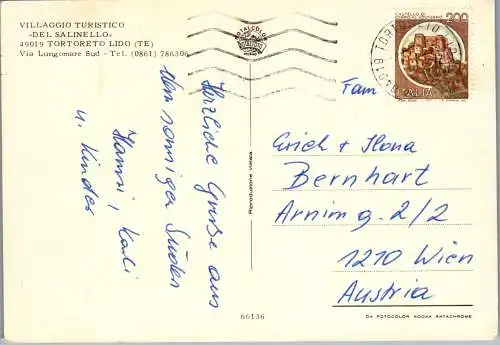 VILLAGGIO TURISTICO
«DEL SALINELLO»
49019 TORTORETO LIDO (TE)
Via Lungomare Sud - Tel. (0861) 786306
Herzliche Grüße aus
dem sonnigen Süden
Hansi, Karli
u. Kinder
Riproduzione vietata
66136
TOTALCOLOR
200
ITALIA
TORTORETO
Fam
Erich + Ilona
Bernhart
Arning. 2/2
1210 Wien
Austria
DA FOTOCOLOR KODAK EKTACHROME